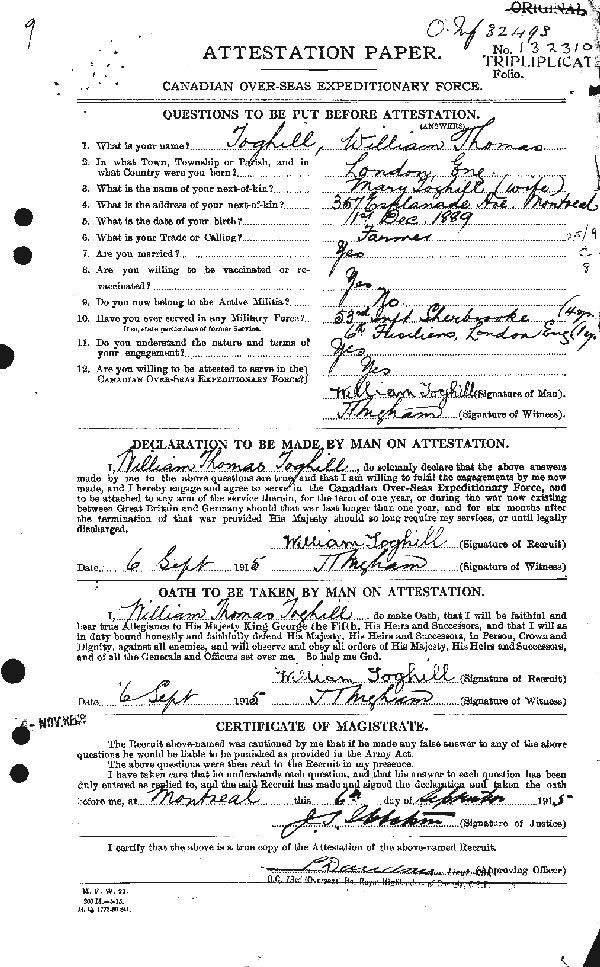 ORIGINAL
9
No. 132310
TRIPLIPLICATE
Folio.
ATTESTATION PAPER.
CANADIAN OVER-SEAS EXPEDITIONARY FORCE.
QUESTIONS TO BE PUT BEFORE ATTESTATION.
(ANSWERS)
1. What is your name? Toghill, William Thomas
2. In what Town, Township or Parish, and in
what Country were you born? London Eng
3. What is the name of your next-of-kin? Mary Toghill (wife)
4. What is the address of your next-of-kin? 357 Esplanade Ave Montreal
5. What is the date of your birth? 11st Dec. 1889
6. What is your Trade or Calling? Farmer
7. Are you married? Yes
8. Are you willing to be vaccinated or re-
vaccinated? Yes
9. Do you now belong to the Active Militia? No
10. Have you ever served in any Military Force? 53rd Inft Sherbrooke
If so, state particulars of former Service. 6th Fusiliers, London Eng
11. Do you understand the nature and terms of
your engagement? Yes
12. Are you willing to be attested to serve in the
CANADIAN OVER-SEAS EXPEDITIONARY FORCE? Yes
William Toghill (Signature of Man).
(Signature of Witness).
DECLARATION TO BE MADE BY MAN ON ATTESTATION.
I, William Thomas Toghill, do solemnly declare that the above answers
made by me to the above questions are true, and that I am willing to fulfil the engagements by me now
made, and I hereby engage and agree to serve in the Canadian Over-Seas Expeditionary Force, and
to be attached to any arm of the service therein, for the term of one year, or during the war now existing
between Great Britain and Germany should that war last longer than one year, and for six months after
the termination of that war provided His Majesty should so long require my services, or until legally
discharged.
William Toghill (Signature of Recruit)
Date 6 Sept 1915 (Signature of Witness)
OATH TO BE TAKEN BY MAN ON ATTESTATION.
I, William Thomas Toghill do make Oath, that I will be faithful and
bear true Allegiance to His Majesty King George the Fifth, His Heirs and Successors, and that I will as
in duty bound honestly and faithfully defend His Majesty, His Heirs and Successors, in Person, Crown and
Dignity, against all enemies, and will observe and obey all orders of His Majesty, His Heirs and Successors,
and of all the Generals and Officers set over me. So help me God.
William Toghill (Signature of Recruit)
Date 6 Sept 1915 (Signature of Witness)
CERTIFICATE OF MAGISTRATE.
The Recruit above-named was cautioned by me that if he made any false answer to any of the above
questions he would be liable to be punished as provided in the Army Act.
The above questions were then read to the Recruit in my presence.
I have taken care that he understands each question, and that his answer to each question has been
duly entered as replied to, and the said Recruit has made and signed the declaration and taken the oath
before me, at Montreal this 6th day of September 1915
(Signature of Justice)
I certify that the above is a true copy of the Attestation of the above-named Recruit.
(Approving Officer)
O.C. 73rd Overseas Bn. Royal Highlanders of Canada, C.E.F.
M. F. W. 23.